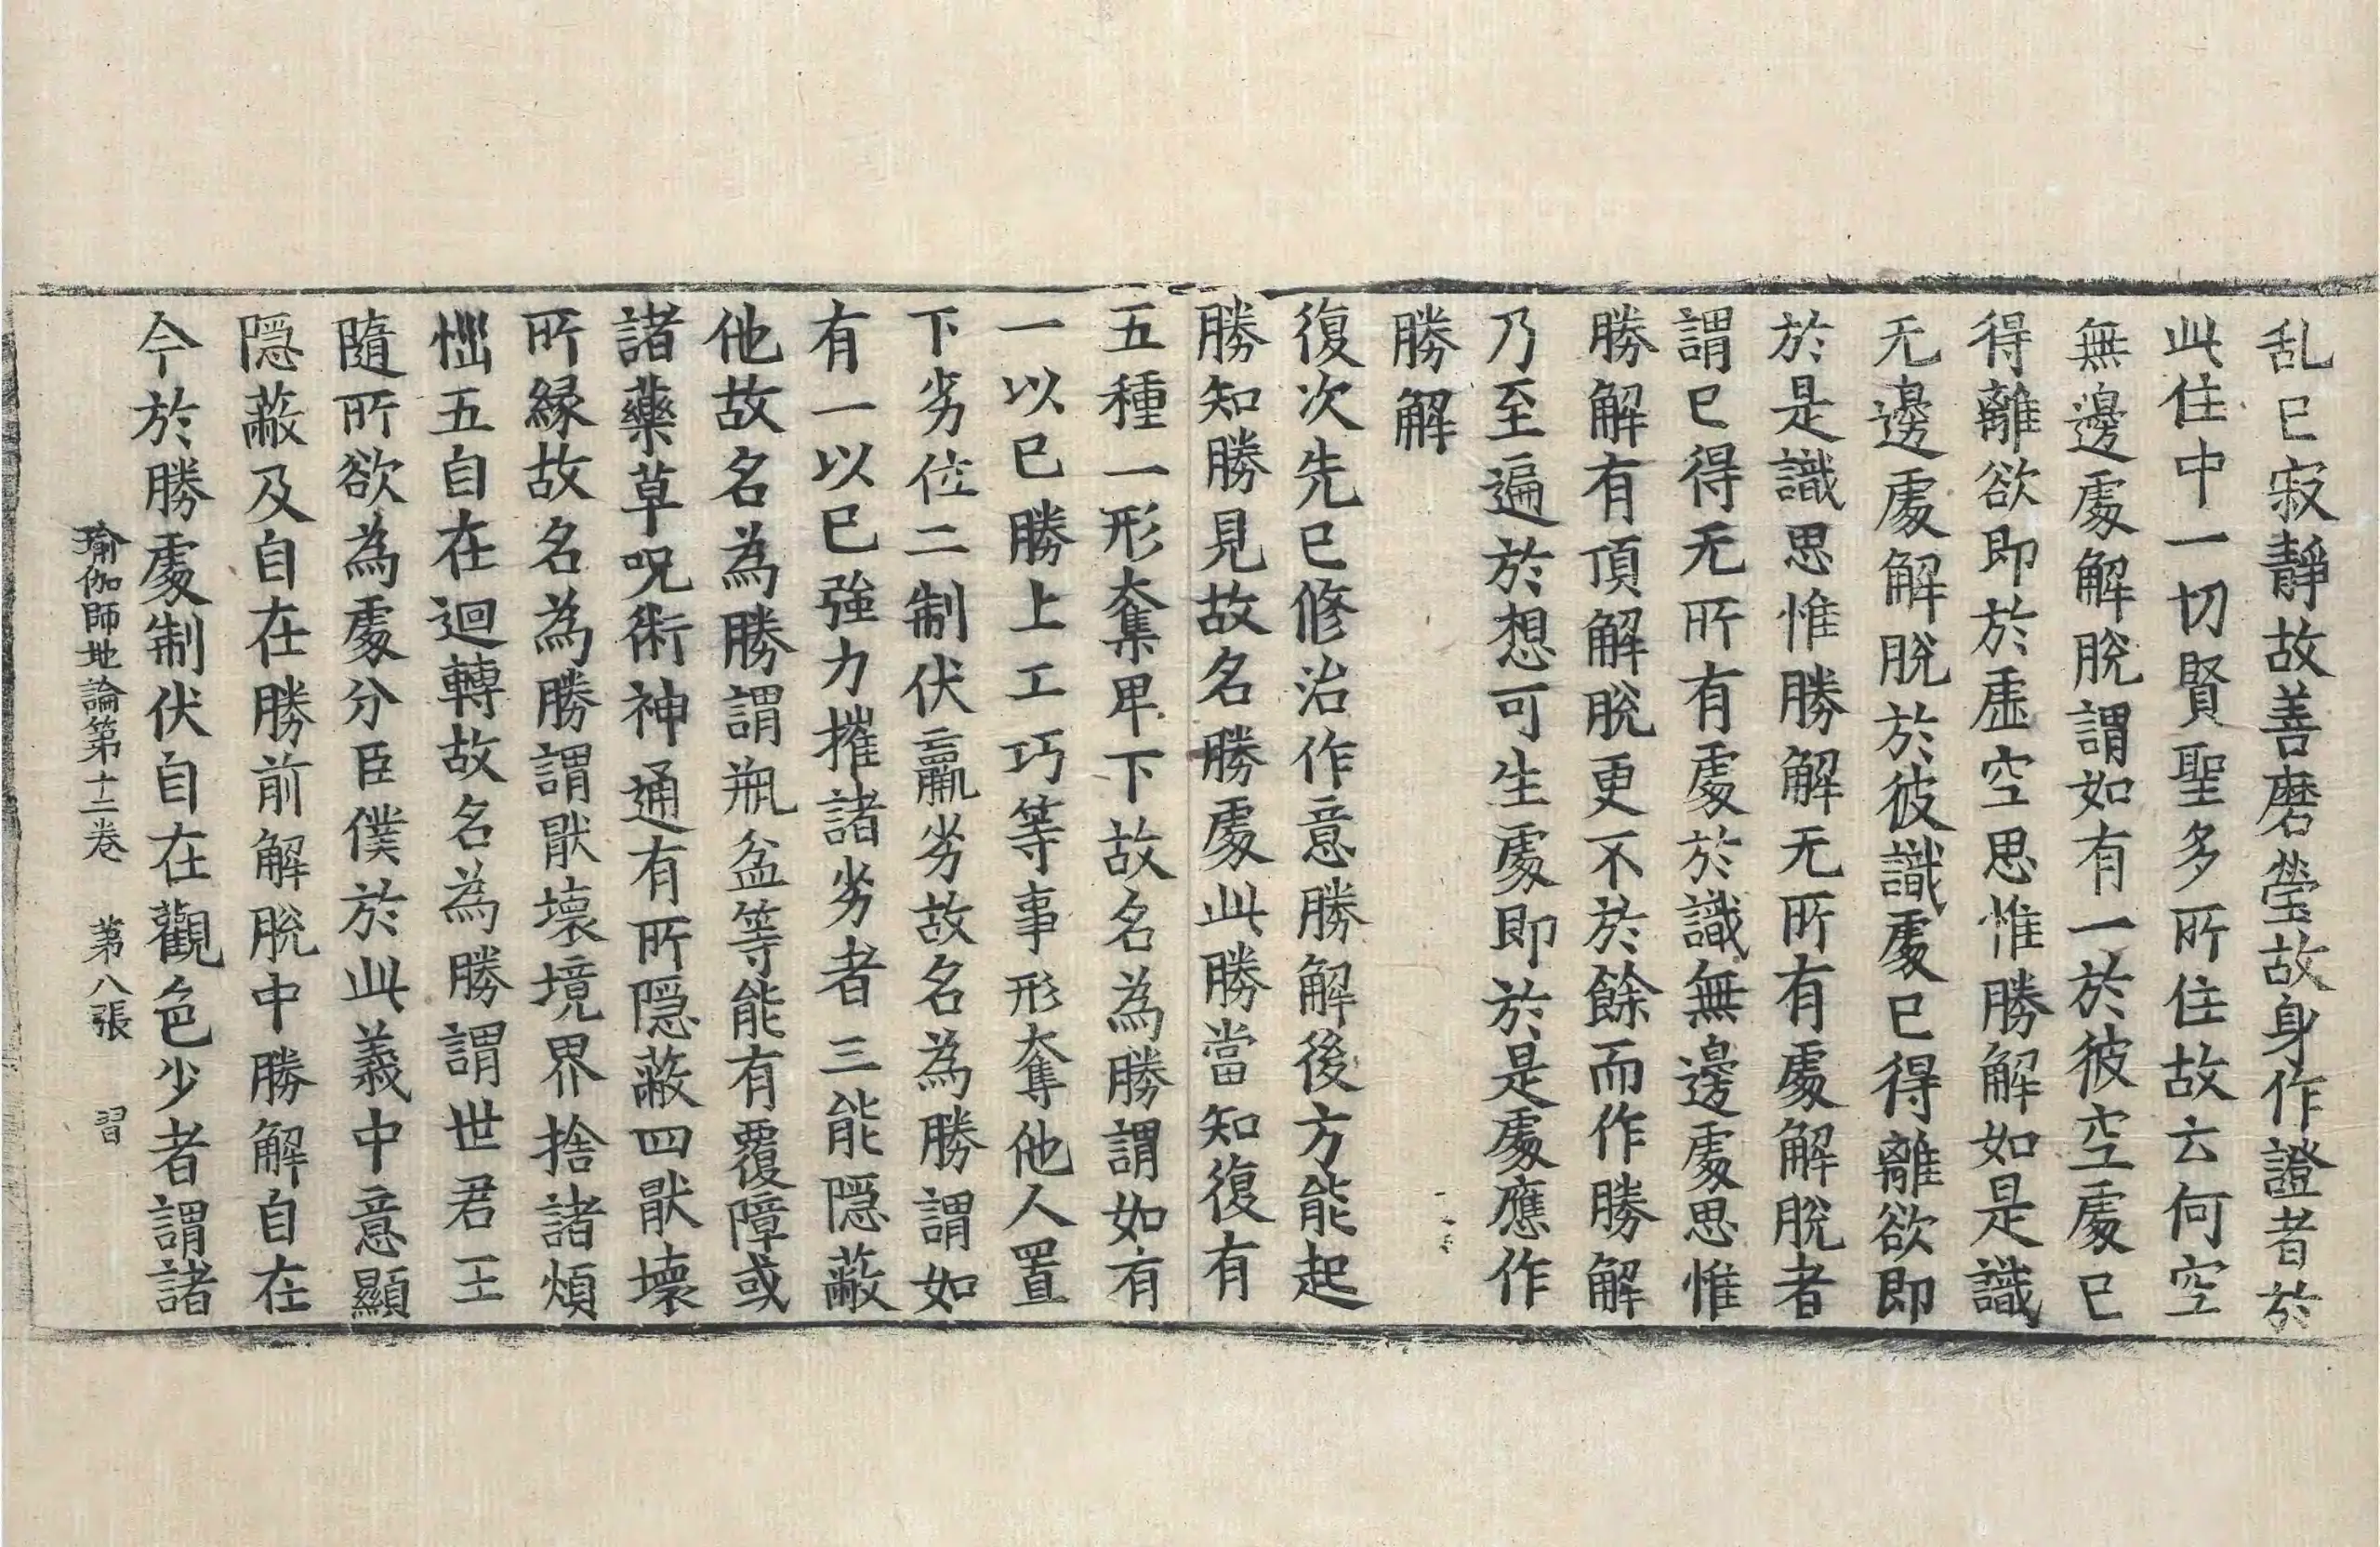 乱已寂靜故善磨瑩故身作證者於
此住中一切賢聖多所住故云何空
無邊處解脫謂如有一於彼空處已
得離欲即於虛空思惟勝解如是識
无邊處解脫於彼識處已得離欲即
於是識思惟勝解无所有處解脫者
謂已得无所有處於識無邊處思惟
勝解有頂解脫更不於餘而作勝解
乃至遍於想可生處即於是處應作
勝解
復次先已修治作意勝解後方能起
勝知勝見故名勝處此勝當知復有
五種一形奪卑下故名為勝謂如有
一以已勝上工巧等事形奪他人置
下劣位二制伏羸劣故名為勝謂如
有一以已強力摧諸劣者三能隱蔽
他故名為勝謂瓶盆等能有覆障或
諸藥草呪術神通有所隱蔽四猒壞
所緣故名為勝謂猒壞境界捨諸煩
惱五自在迴轉故名為勝謂世君王
隨所欲為處分臣僕於此義中意顯
隱蔽及自在勝前解脫中勝解自在
今於勝處制伏自在觀色少者謂諸
瑜伽師地論第十二卷 第八張 習